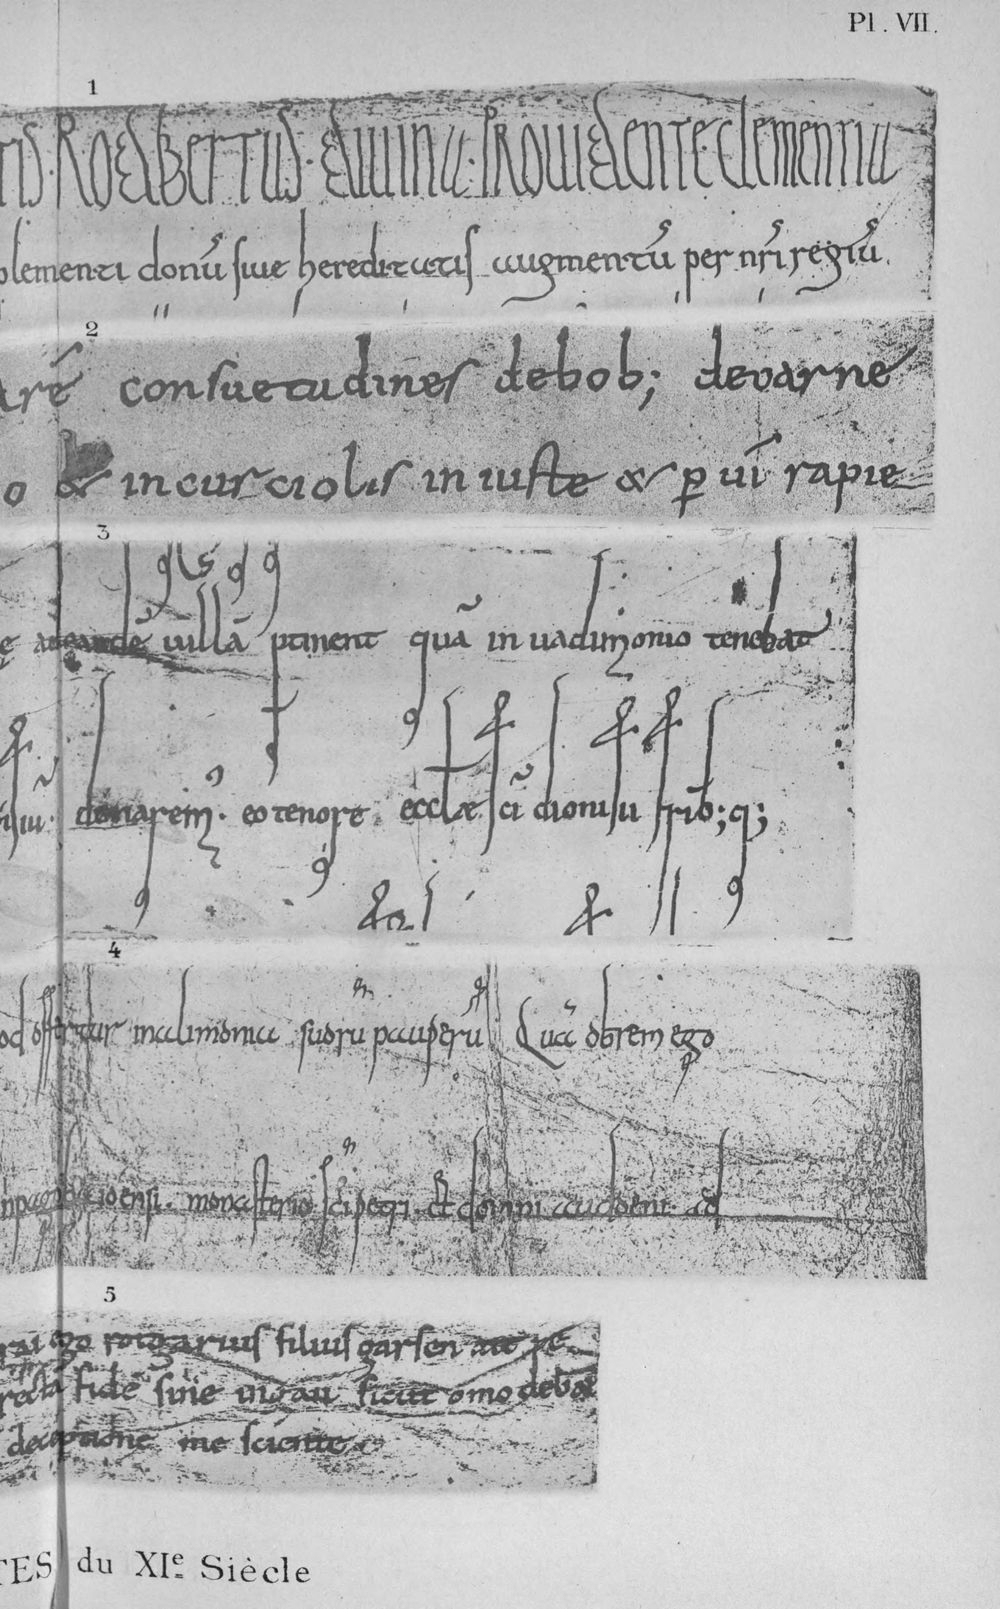 Pl. VII.
1
TIS. RODBERTUS. DIVINA. PROVIDENTE CLEMENTIA
plementi donū sive hereditatis augmentū per nr̄i regiū.
2
arē consuetudines de bob; devarne
o & incursciolis in iuste & p̄ vī rapie
3
ę ad eandē villā ptinent quā in uadimonio tenebat
donarem. eo tenore ecclæ sc̄i dionisii frib; q;
4
od offertur in alimonia suorū pauperū Quā obrem ego
in pago ensi. monasterio sc̄i petri. Et domni audoeni. ad
5
rai ego rotgarius filius garsen
rectā fidē sine ingan sicut omo debet
deceptione me sciente
TES du XIe Siècle